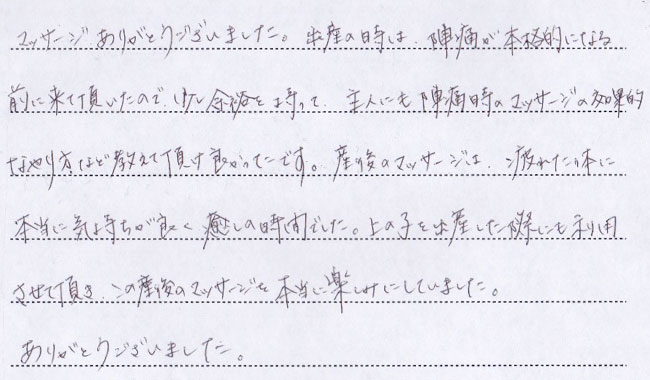 マッサージありがとうございました。出産の時は、陣痛が本格的になる
前に来て頂いたので、少し余裕を持って、主人にも陣痛時のマッサージの効果的
なやり方など教えて頂け良かったです。産後のマッサージは、疲れた体に
本当に気持ちが良く癒しの時間でした。上の子を出産した際にも利用
させて頂き、この産後のマッサージを本当に楽しみにしていました。
ありがとうございました。